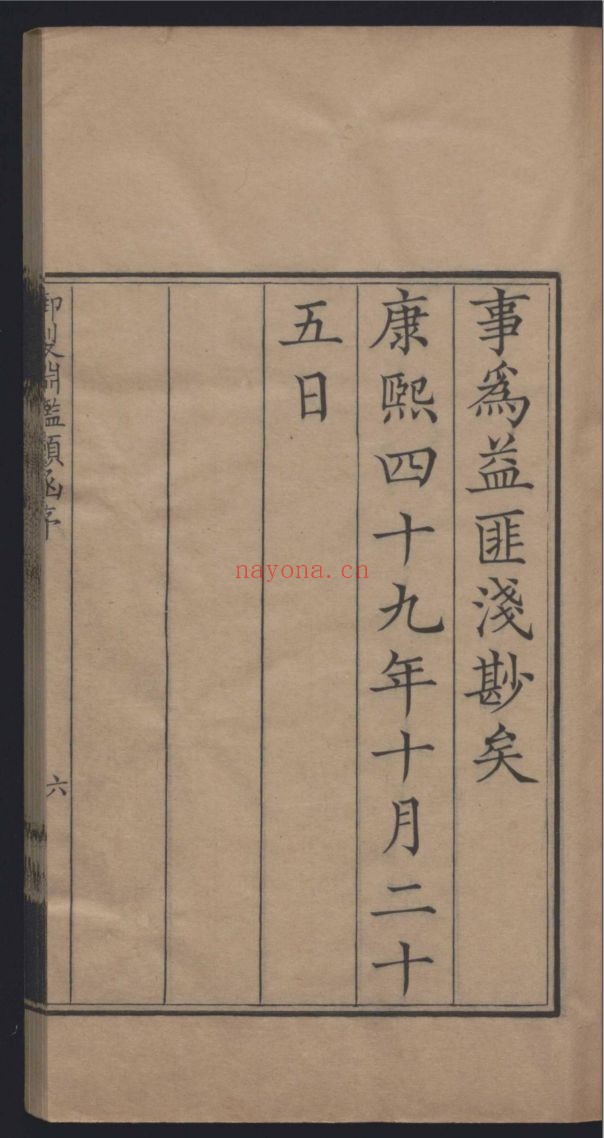 事爲益匪淺尠矣
康熙四十九年十月二十
五日
御製淵鑑類函序
六
nayona.cn